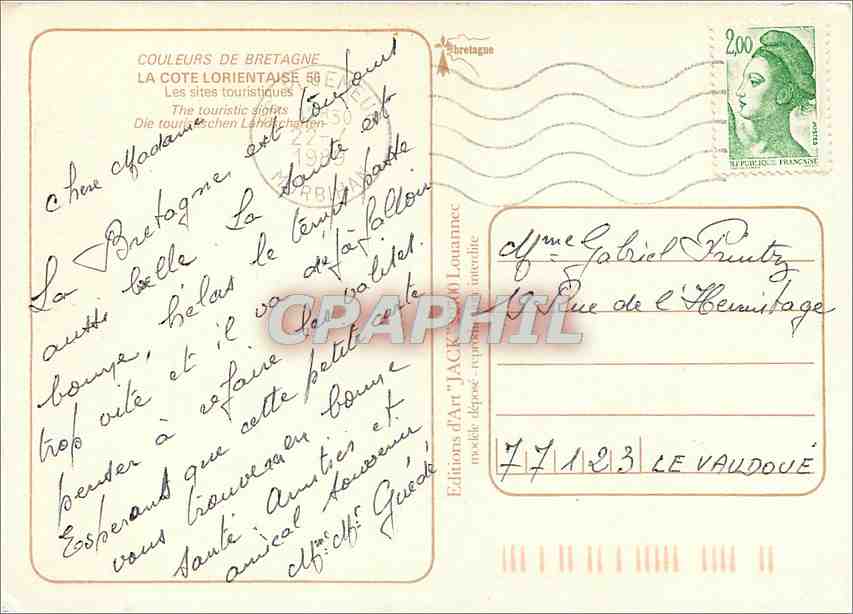 COULEURS DE BRETAGNE
LA COTE LORIENTAISE 56
Les sites touristiques
The touristic sights
Die touristischen Landschaften
chère Madame
La Bretagne est toujours
aussi belle. La santé est
bonne, hélas le temps passe
trop vite et il va déjà falloir
penser à refaire les valises.
Espérant que cette petite carte
vous trouvera en bonne
santé. Amitiés et
amical souvenir
Mme Mr Guédé
bretagne
22
19
MORBIHAN
2,00
POSTES
REPUBLIQUE FRANÇAISE
Editions d'Art "JACK" Louannec
modèle déposé - reproduction interdite
CPAPHIL
Mme Gabriel Printz
19 Rue de l'Hermitage
77123 LE VAUDOUÉ